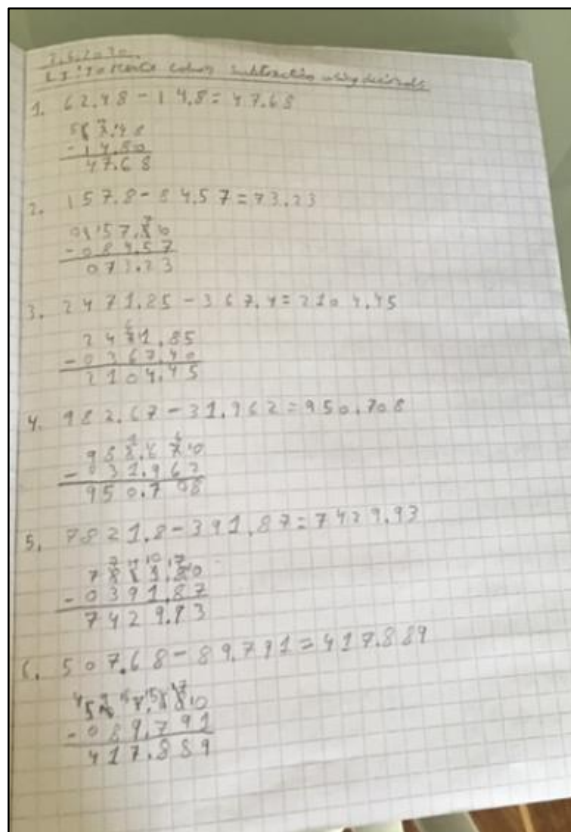 2.6.2020
L.I: To Practice column subtraction using decimals
1. 62.48 - 14.8 = 47.68
- 14.80
47.68
2. 157.8 - 84.57 = 73.23
- 084.57
073.23
3. 2471.85 - 367.4 = 2104.45
2471.85
- 0367.40
2104.45
4. 982.67 - 31.962 = 950.708
- 031.962
950.708
5. 7821.8 - 391.87 = 7429.93
- 0391.87
7429.93
6. 507.68 - 89.791 = 417.889
- 089.791
417.889